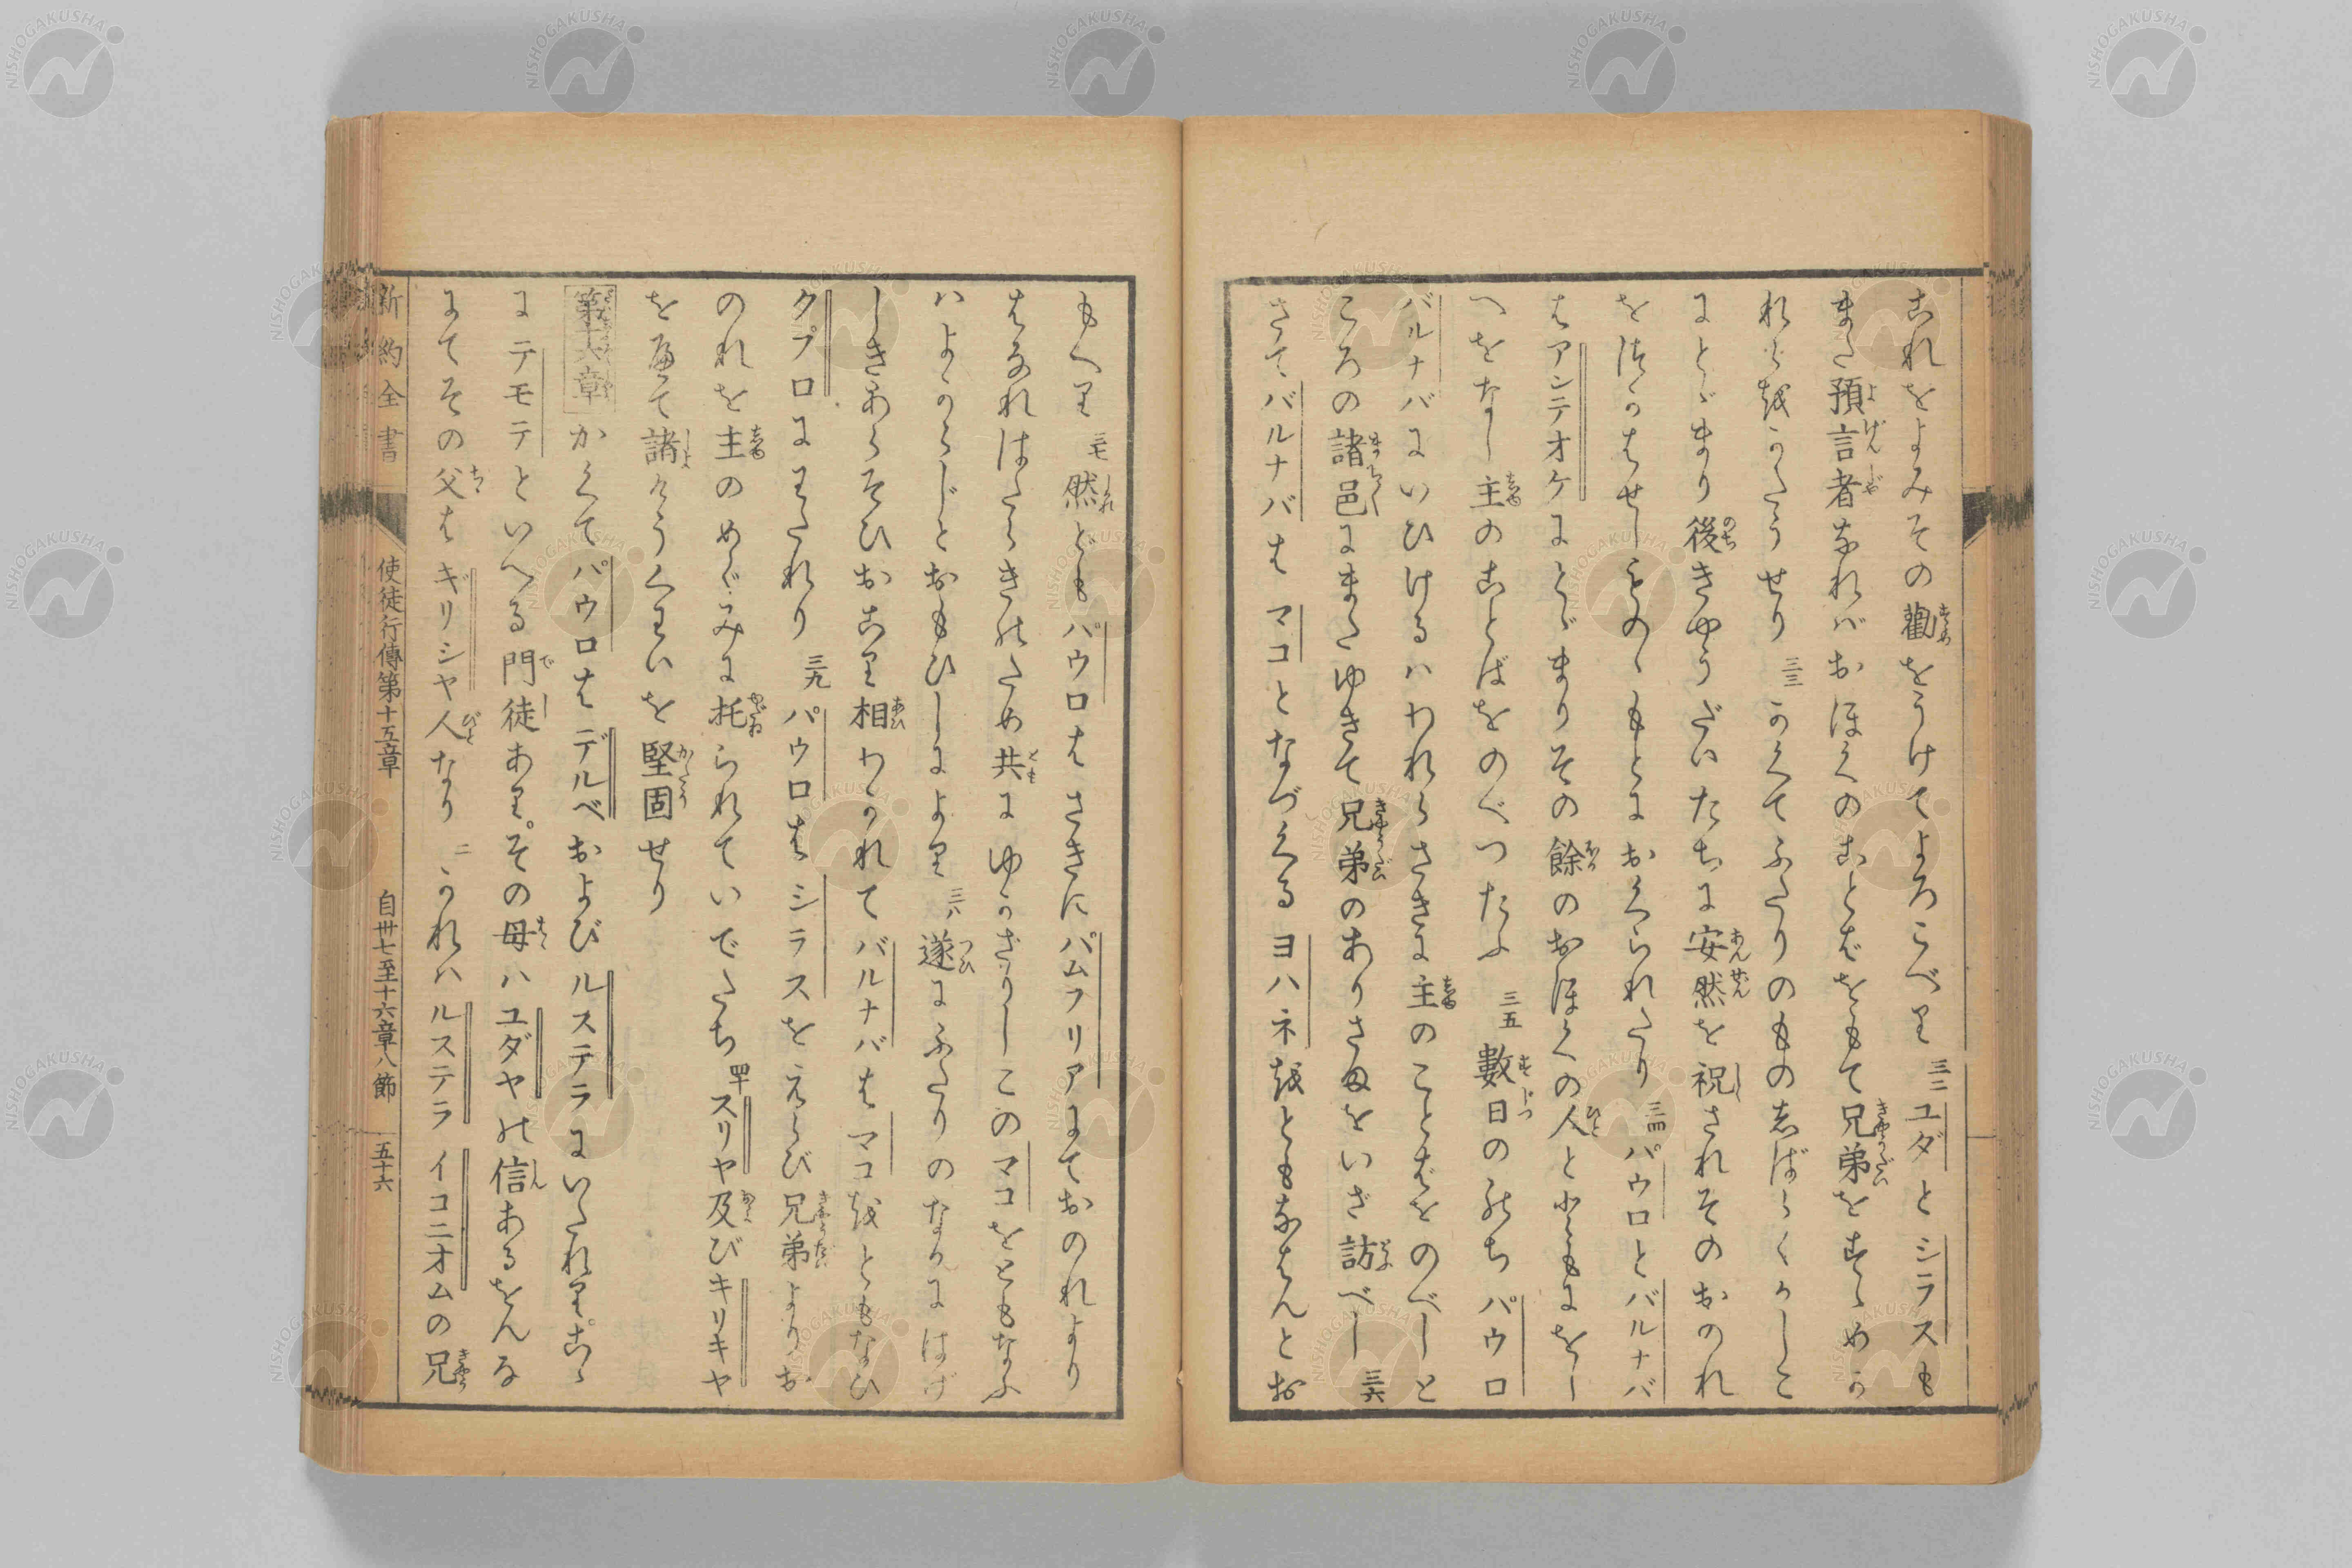 これをよみその勸をうけてよろこべり 三二 ユダとシラスも
また預言者なれバおほくのことばをもて兄弟をすゝめか
れらをかたうせり 三三 かくてふたりのもの志ばらくかしこ
にとゞまり後きやうだいたちに安然を祝されそのおのれ
をつかはせしものゝもとにおくられたり 三四 パウロとバルナバ
はアンテオケにとゞまりその餘のおほくの人とともにをし
へをなし主のことばをのべつたふ 三五 數日ののちパウロ
バルナバにいひけるハわれらさきに主のことばをのべしと
ころの諸邑にまたゆきて兄弟のありさまをいざ訪べし 三六
さてバルナバはマコとなづくるヨハネをともなはんとお
もへり 三七 然どもパウロはさきにパムフリアにておのれより
はなれはたらきのため共にゆかざりしこのマコをともなふ
ハよからじとおもひしによりて 三八 遂にふたりのなかにはげ
しきあらそひおこり相わかれてバルナバはマコをともなひ
クプロにわたれり 三九 パウロはシラスをえらび兄弟よりお
のれを主のめぐみに托られていでたち 四十 スリヤ及びキリキヤ
を經て諸けうくわいを堅固せり
第十六章 かくてパウロはデルベおよびルステラにいたれり。こゝ
にテモテといへる門徒あり。その母ハユダヤの信あるをんな
にてその父はギリシヤ人なり 二 かれハルステラ イコニオムの兄
新約全書 使徒行傳第十五章 自卅七至十六章八節 五十六